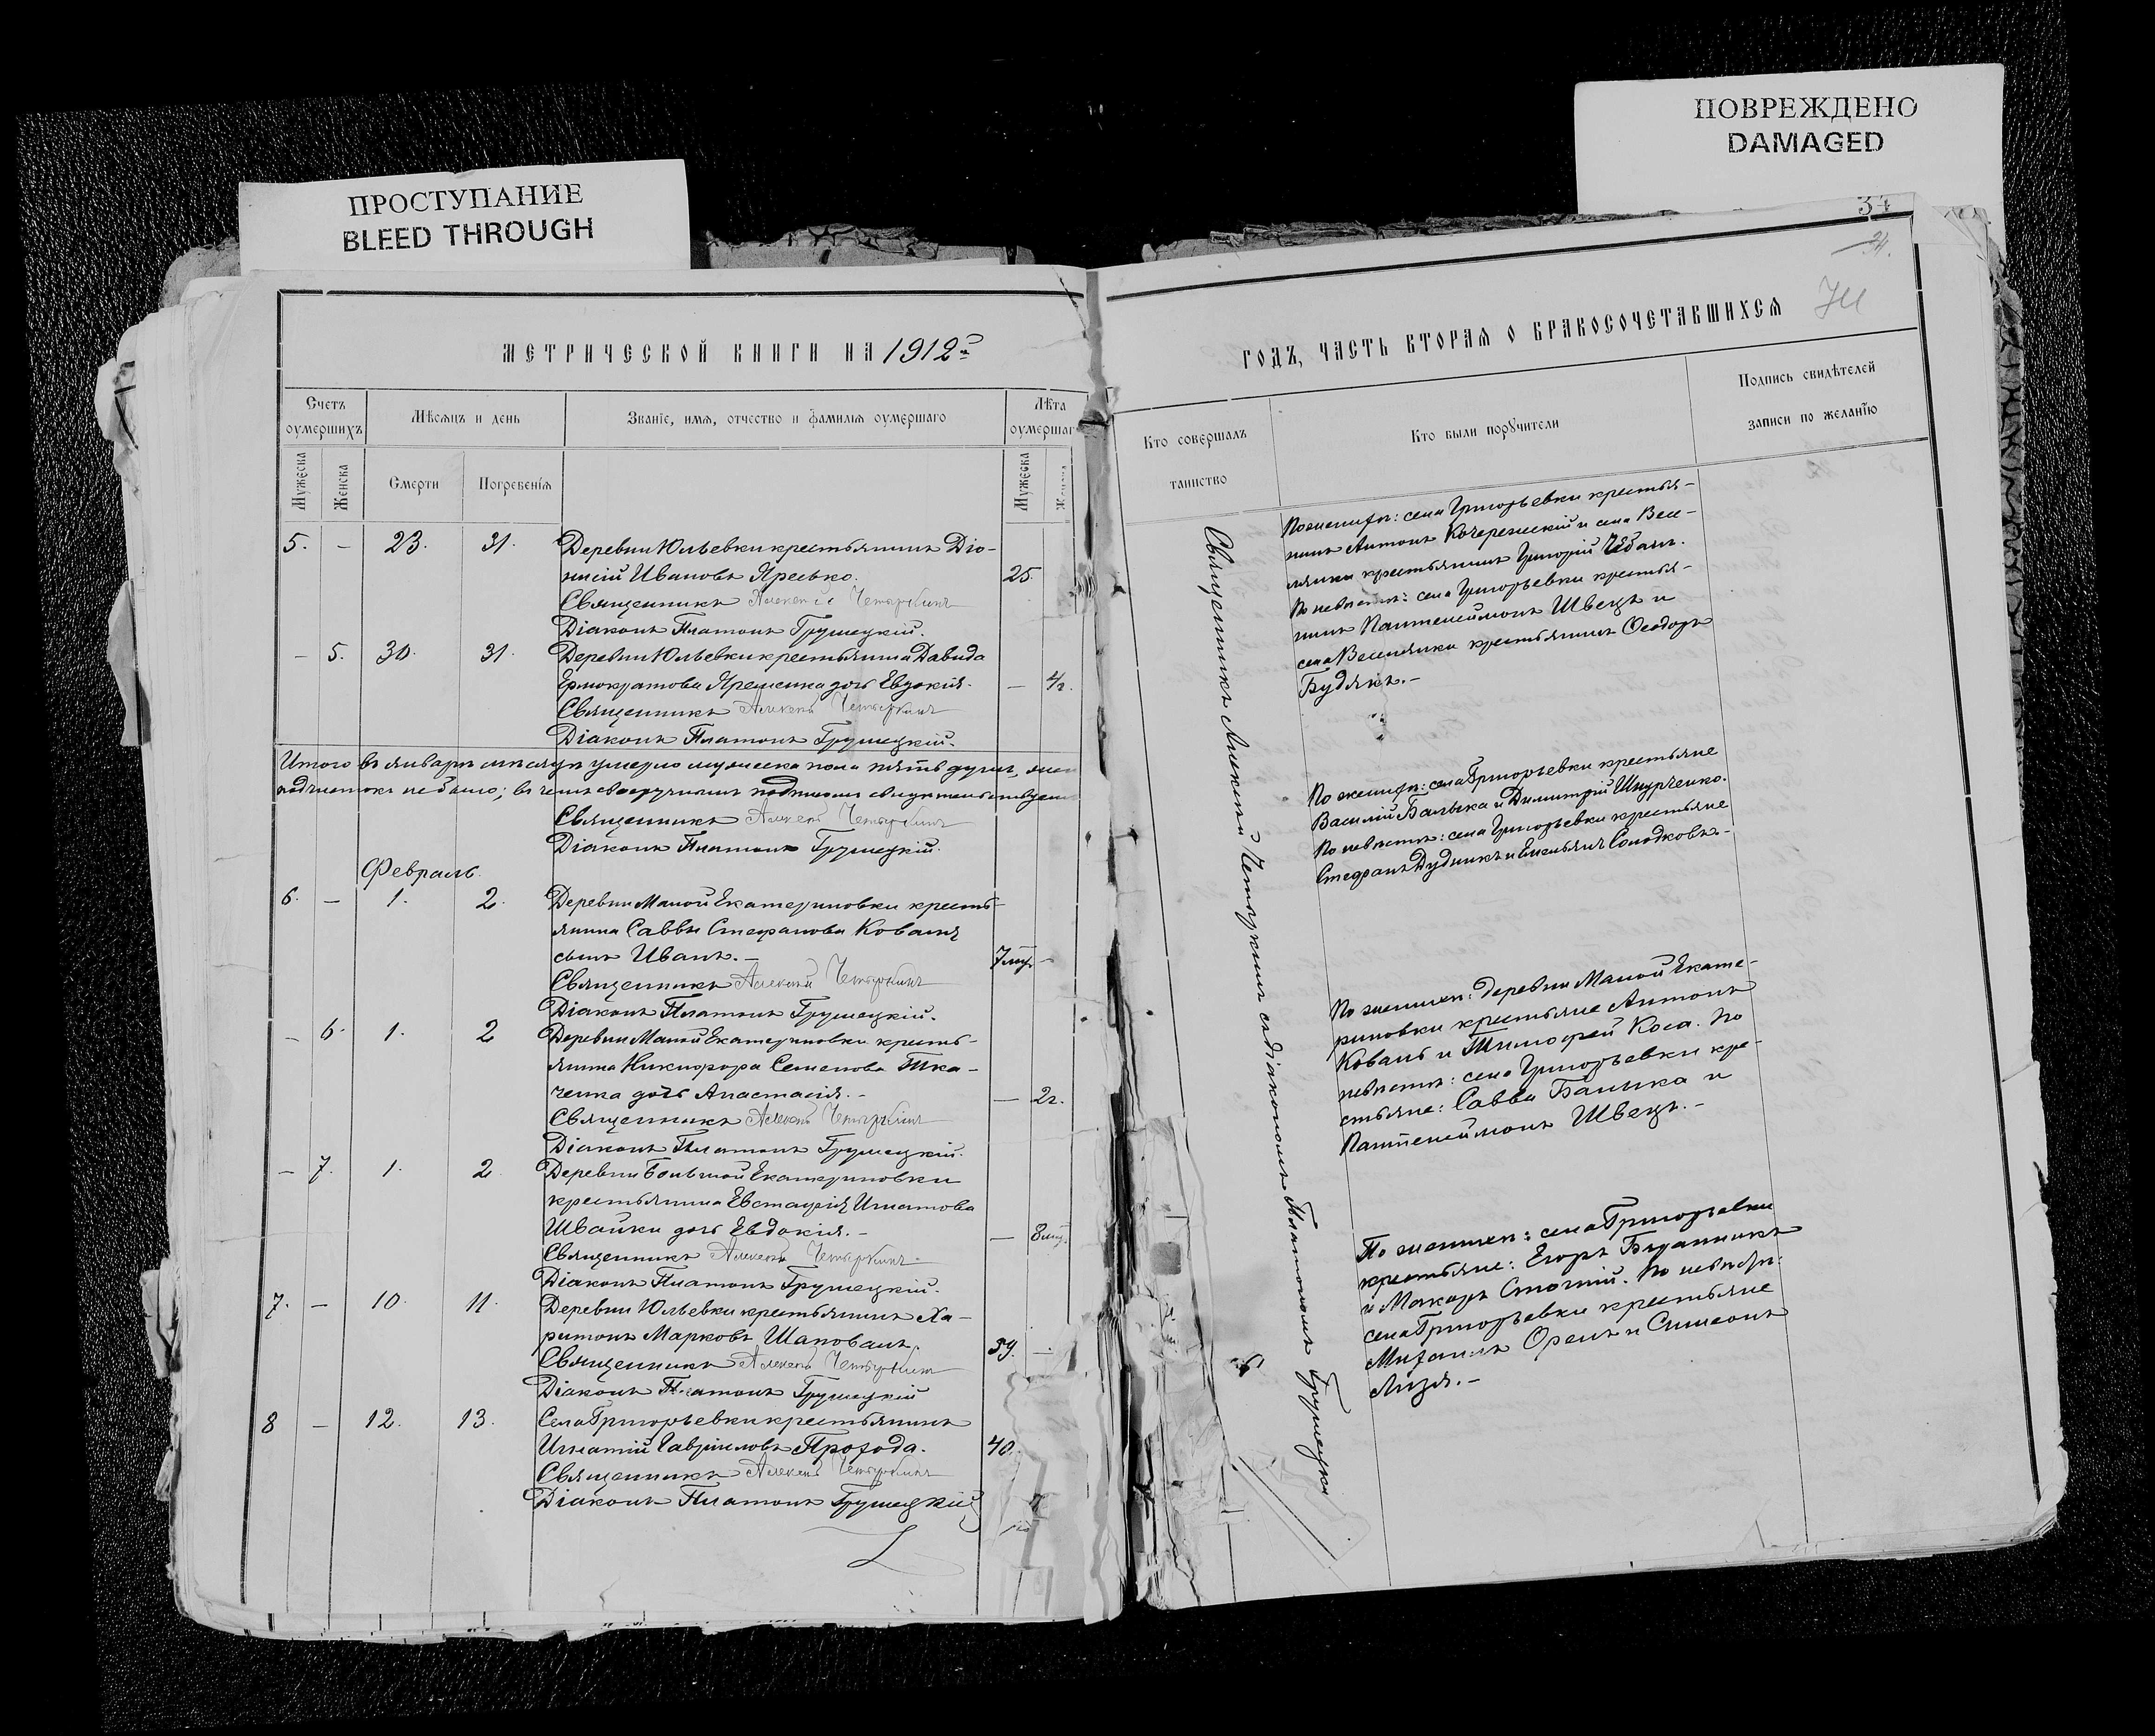 ПРОСТУПАНИЕ
BLEED THROUGH
ПОВРЕЖДЕНО
DAMAGED
34
МЕТРИЧЕСКОЙ КНИГИ НА 1912 г.
Счетъ оумершихъ
Мѣсяцъ и день
Званіе, имя, отчество и фамилія оумершаго
Лѣта оумершаг
Мужеска
Женска
Смерти
Погребенія
Мужеска
5. – 23. 31. Деревни Юльевки крестьянинъ Діо-
нисій Ивановъ Яресько. 25.
Священникъ Алексѣй Четыркинъ
Діаконъ Платонъ Грушецкій.
– 5. 30. 31. Деревни Юльевки крестьянина Давида
Ермократова Яременка дочь Евдокія. –
Священникъ Алексѣй Четыркинъ
Діаконъ Платонъ Грушецкій.
Итого въ январѣ мѣсяцѣ умерло мужеска пола пять душъ,
подчистокъ не было; въ чемъ своеручнымъ подписомъ свидѣтельствуемъ
Священникъ Алексѣй Четыркинъ
Діаконъ Платонъ Грушецкій.
Февраль.
6. – 1. 2. Деревни Малой Екатериновки кресть-
янина Саввы Стефанова Коваля
сынъ Иванъ. – 7 –
Священникъ Алексѣй Четыркинъ
Діаконъ Платонъ Грушецкій.
– 6. 1. 2 Деревни Малой Екатериновки кресть-
янина Никифора Семенова Тка-
ченка дочь Анастасія. – – 2г.
Священникъ Алексѣй Четыркинъ
Діаконъ Платонъ Грушецкій.
– 7. 1. 2 Деревни Большой Екатериновки
крестьянина Евстафія Игнатова
Швайки дочь Евдокія. – – 8
Священникъ Алексѣй Четыркинъ
Діаконъ Платонъ Грушецкій.
7. – 10. 11. Деревни Юльевки крестьянинъ Ха-
ритонъ Марковъ Шаповалъ. 59. –
Священникъ Алексѣй Четыркинъ
Діаконъ Платонъ Грушецкій
8 – 12. 13. Села Григорьевки крестьянинъ
Игнатій Гавріиловъ Прохода. 40.
Священникъ Алексѣй Четыркинъ
Діаконъ Платонъ Грушецкій
ГОДЪ, ЧАСТЬ ВТОРАЯ О БРАКОСОЧЕТАВШИХСЯ
Кто совершалъ таинство
Кто были поручители
Подпись свидѣтелей записи по желанію
Священникъ Алексѣй Четыркинъ съ діакономъ Платономъ Грушецки
По женихѣ: села Григорьевки крестья-
нинъ Антонъ Кочережскій и села Весе-
лянки крестьянинъ Григорій Чабанъ.
По невѣстѣ: села Григорьевки крестья-
нинъ Пантелеймонъ Швецъ и
села Веселянки крестьянинъ Ѳеодоръ
Будякъ. –
По женихѣ: села Григорьевки крестьяне
Василій Балыка и Димитрій Шнурченко.
По невѣстѣ: села Григорьевки крестьяне
Стефанъ Дудникъ и Емельянъ Солодковъ. –
По женихѣ: деревни Малой Екате-
риновки крестьяне Антонъ
Коваль и Тимофей Коса. По
невѣстѣ: села Григорьевки кре-
стьяне: Савва Балыка и
Пантелеймонъ Швецъ. –
По женихѣ: села Григорьевки
крестьяне: Егоръ
и Макаръ По невѣстѣ:
села Григорьевки крестьяне
Михаилъ Орелъ и Симеонъ